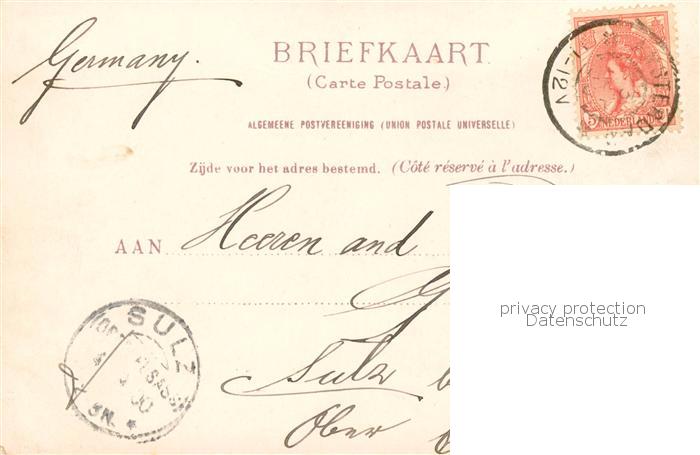 Germany.
BRIEFKAART
(Carte Postale.)
ALGEMEENE POSTVEREENIGING (UNION POSTALE UNIVERSELLE)
Zijde voor het adres bestemd. (Côté réservé à l'adresse.)
5 NEDERLAND
7-12V
AAN Heeren and
privacy protection
Datenschutz
SULZ
Sulz
Ober